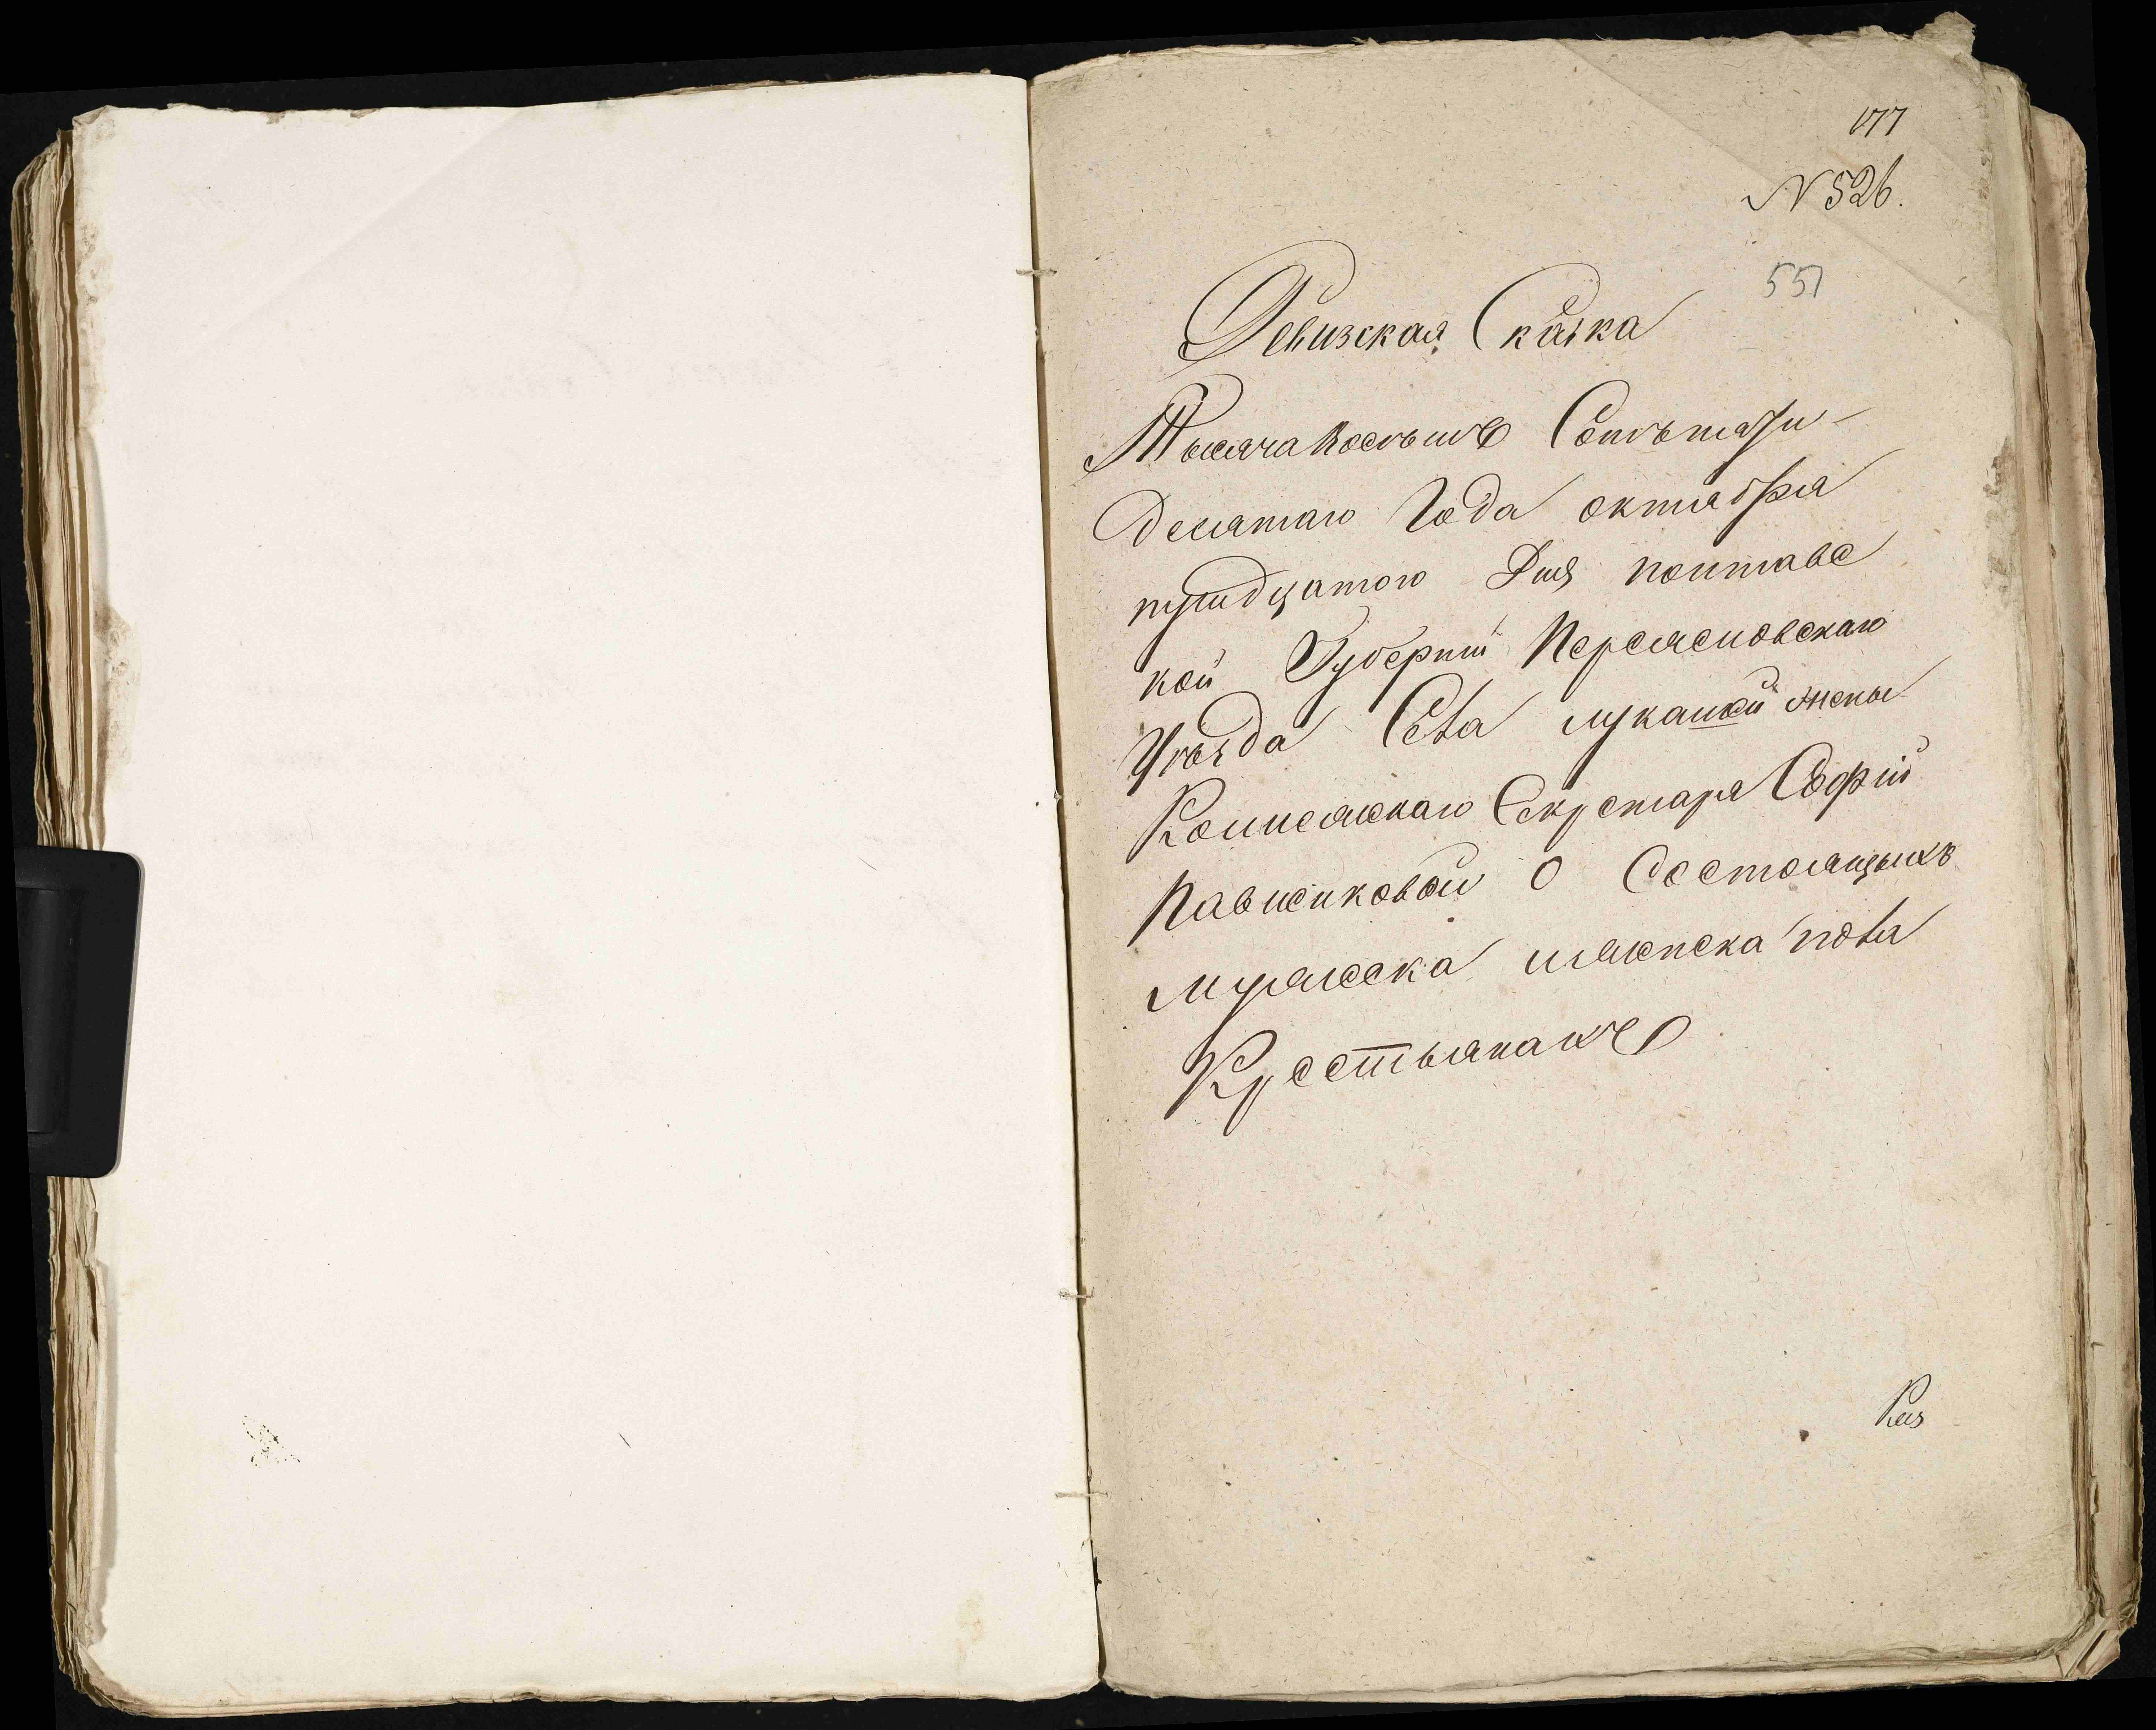 177
N 526.
551
Ревизская Сказка
Тысяча Восемъ Сотъ пятьи
десятаго Года октября
тридцатого Дня полтавс
кой Губерніи Переясловскаго
Уезда Села лукашей жены
Коллежскаго Секретаря Софіи
Павленковой О Состоящихъ
мужеска и женска пола
Крестьянахъ